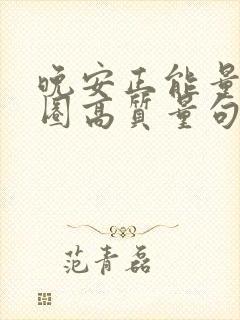 晚安正能量
圈高质量句
范青磊